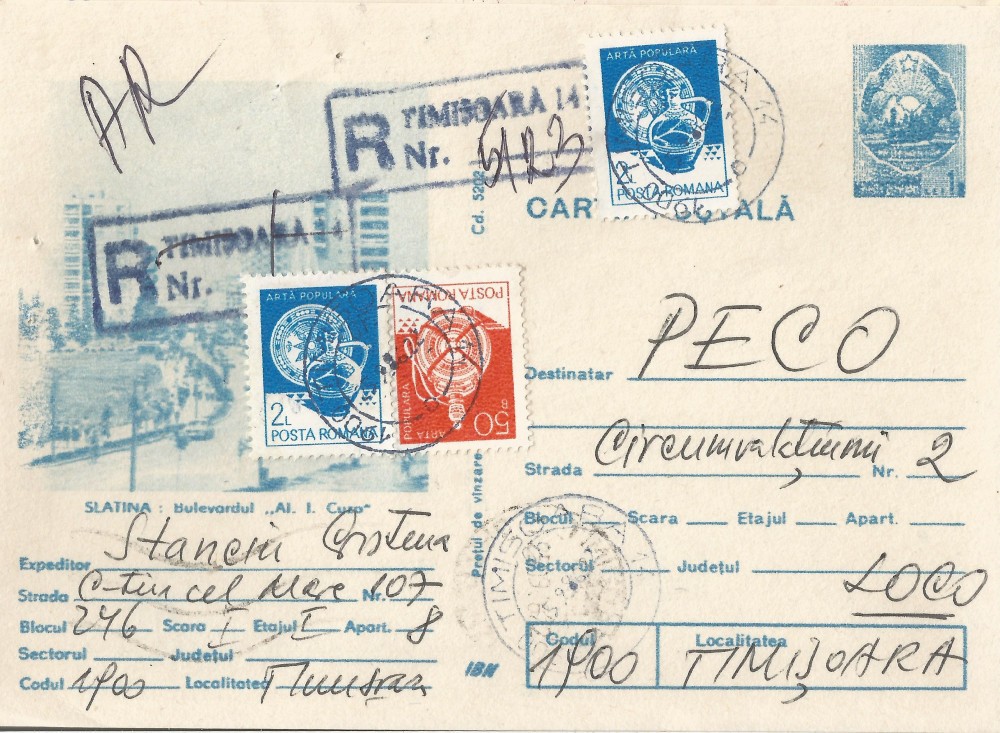 AR
R TIMIȘOARA 14
Nr. 5123
ARTĂ POPULARĂ
2L
POSTA ROMANA
1 LEI
CARTE POȘTALĂ
R TIMIȘOARA 14
Nr.
ARTĂ POPULARĂ
2L
POSTA ROMANA
POSTA ROMANA
ARTĂ POPULARĂ
50 B
SLATINA : Bulevardul „Al. I. Cuza"
Expeditor Stanciu Cristina
Strada C-tin cel Mare Nr. 107
Blocul 246 Scara I Etajul I Apart. 8
Sectorul Județul
Codul 1900 Localitatea Timișoara
Cd. 5202
Prețul de vînzare
IBH
Destinatar PECO
Strada Circumvalațiunii Nr. 2
Blocul Scara Etajul Apart.
Sectorul Județul LOCO
TIMIȘOARA
Codul Localitatea
1900 TIMIȘOARA